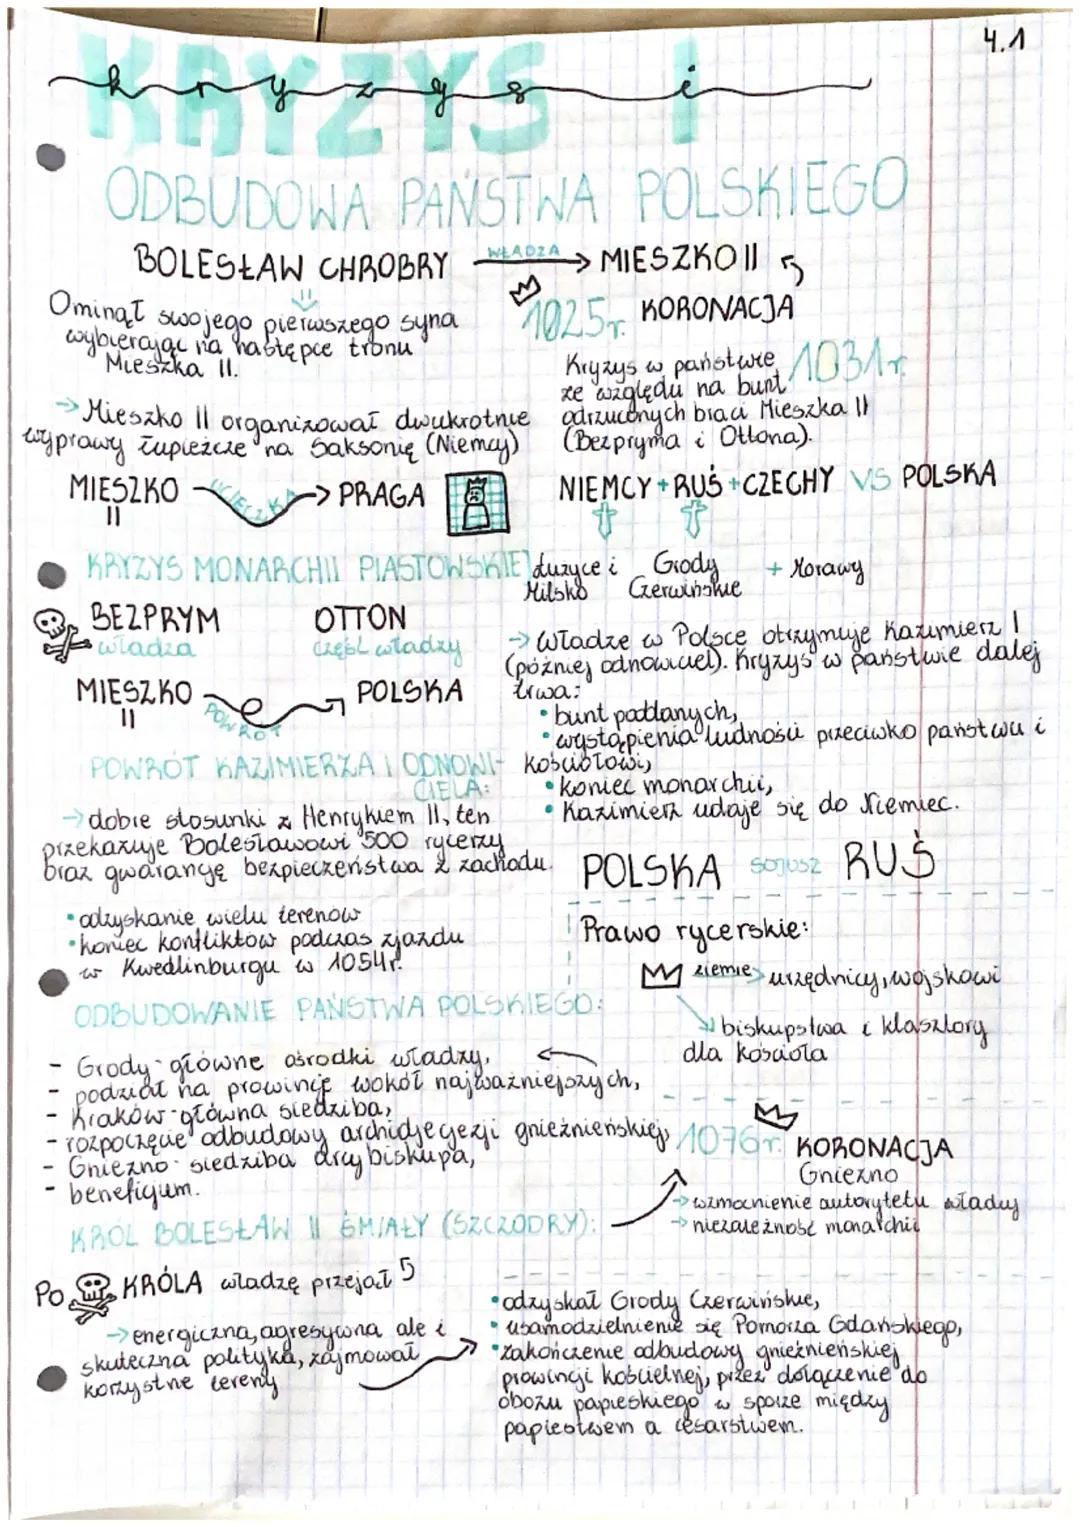 4.1
KRYZYS I
kryzys i
ODBUDOWA PAŃSTWA POLSKIEGO
BOLESŁAW CHROBRY WŁADZA → MIESZKO II
Ominął swojego pierwszego syna
wybierając na następce tronu
Mieszka II.
1025r. KORONACJA
Kryzys w państwie 1031r.
ze względu na bunt
odrzuconych braci Mieszka II
(Bezpryma i Ottona).
→ Mieszko II organizował dwukrotnie
wyprawy łupieżcze na Saksonię (Niemcy)
MIESZKO II UCIECZKA → PRAGA
NIEMCY + RUŚ + CZECHY VS POLSKA
Łużyce i Grody + Morawy
Milsko Czerwińskie
KRYZYS MONARCHII PIASTOWSKIEJ
BEZPRYM OTTON
władza część władzy
MIESZKO II POWRÓT → POLSKA
→ Władze w Polsce otrzymuje Kazimierz I
(później odnowiciel). Kryzys w państwie dalej
trwa:
• bunt poddanych,
• wystąpienia ludności przeciwko państwu i
kościołowi,
• koniec monarchii,
• Kazimierz udaje się do Niemiec.
POWRÓT KAZIMIERZA I ODNOWI-
CIELA:
→ dobre stosunki z Henrykiem II, ten
przekazuje Bolesławowi 500 rycerzy
oraz gwarancję bezpieczeństwa z zachodu.
• odzyskanie wielu terenów
• koniec konfliktów podczas zjazdu
w Kwedlinburgu w 1054r.
POLSKA SOJUSZ RUŚ
Prawo rycerskie:
ziemie → urzędnicy, wojskowi
biskupstwa i klasztory
dla kościoła
ODBUDOWANIE PAŃSTWA POLSKIEGO:
- Grody - główne ośrodki władzy,
- podział na prowincje wokół najważniejszych,
- Kraków - główna siedziba,
- rozpoczęcie odbudowy archidjecezji gnieźnieńskiej,
- Gniezno - siedziba arcybiskupa,
- beneficjum.
1076r. KORONACJA
Gniezno
→ wzmocnienie autorytetu władcy
→ niezależność monarchii
KRÓL BOLESŁAW II ŚMIAŁY (SZCZODRY):
Po KRÓLA władzę przejął
→ energiczna, agresywna ale i
skuteczna polityka, zajmował
korzystne tereny
• odzyskał Grody Czerwińskie,
• usamodzielnienie się Pomorza Gdańskiego,
• zakończenie odbudowy gnieźnieńskiej
prowincji kościelnej, przez dołączenie do
obozu papieskiego w sporze między
papiestwem a cesarstwem.